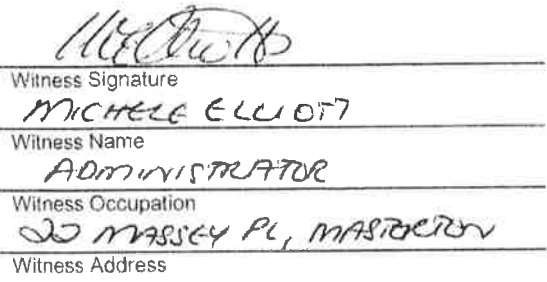 Witness Signature
MICHELE ELLIOTT
Witness Name
ADMINISTRATOR
Witness Occupation
MASSEY PL, MASTERTON
Witness Address